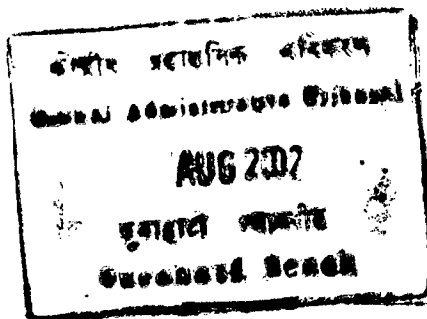 केन्द्रीय प्रशासनिक अधिकरण
Central Administrative Tribunal
AUG 2002
गुवाहाटी न्यायपीठ
Guwahati Bench